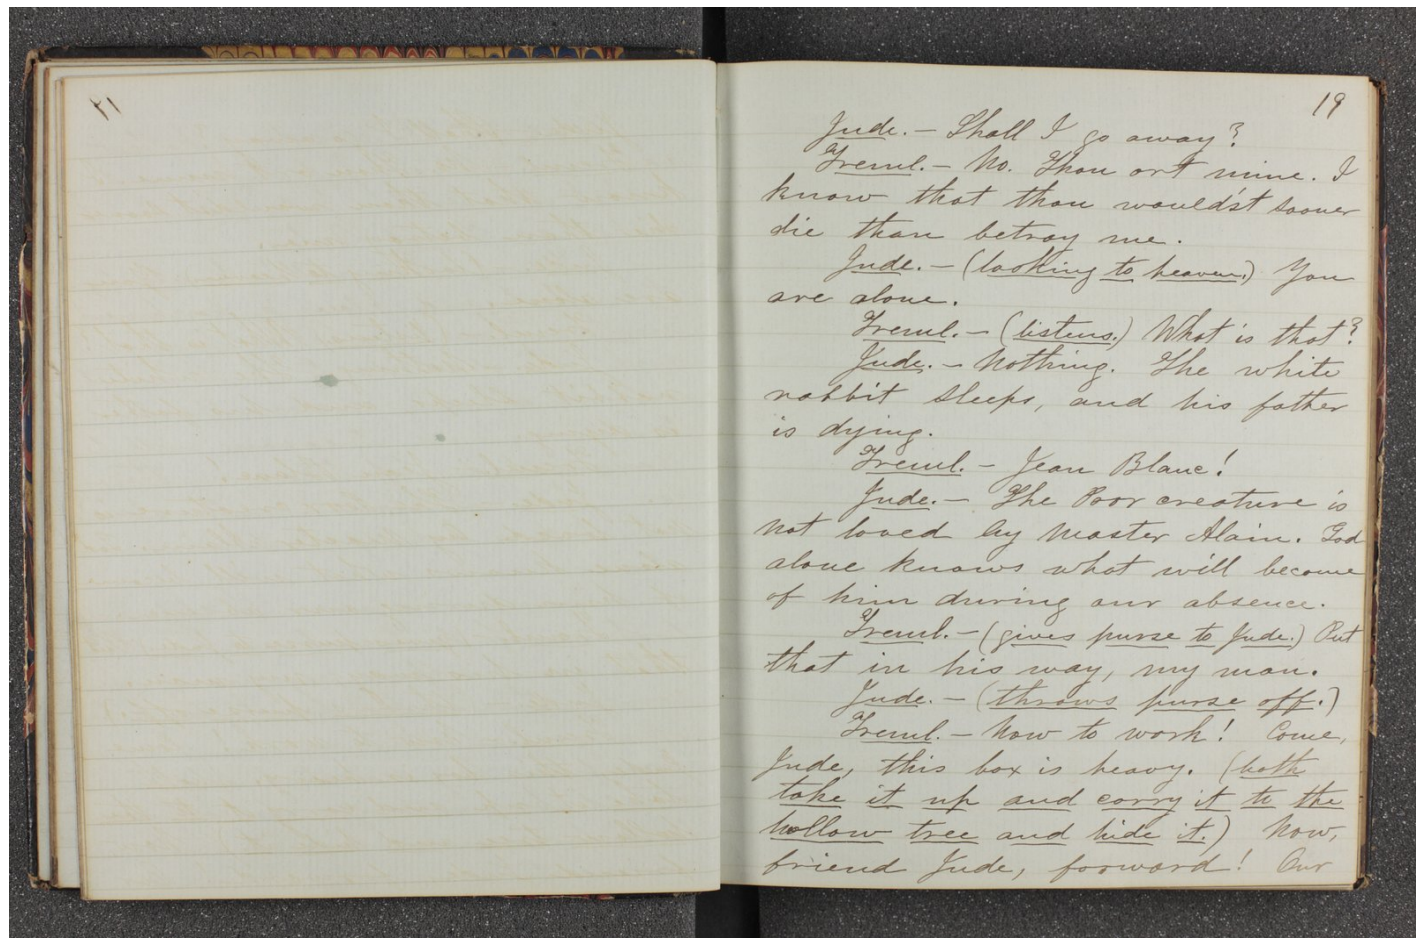 19
Jude. — Shall I go away?
Treml. — No. Thou art mine. I
know that thou would'st sooner
die than betray me.
Jude. — (looking to heaven.) You
are alone.
Treml. — (listens.) What is that?
Jude. — Nothing. The white
rabbit sleeps, and his father
is dying.
Treml. — Jean Blanc!
Jude. — The Poor creature is
not loved by Master Alain. God
alone knows what will become
of him during our absence.
Treml. — (gives purse to Jude.) Put
that in his way, my man.
Jude. — (throws purse off.)
Treml. — Now to work! Come,
Jude, this box is heavy. (both
take it up and carry it to the
hollow tree and hide it.) Now,
friend Jude, forward! Our